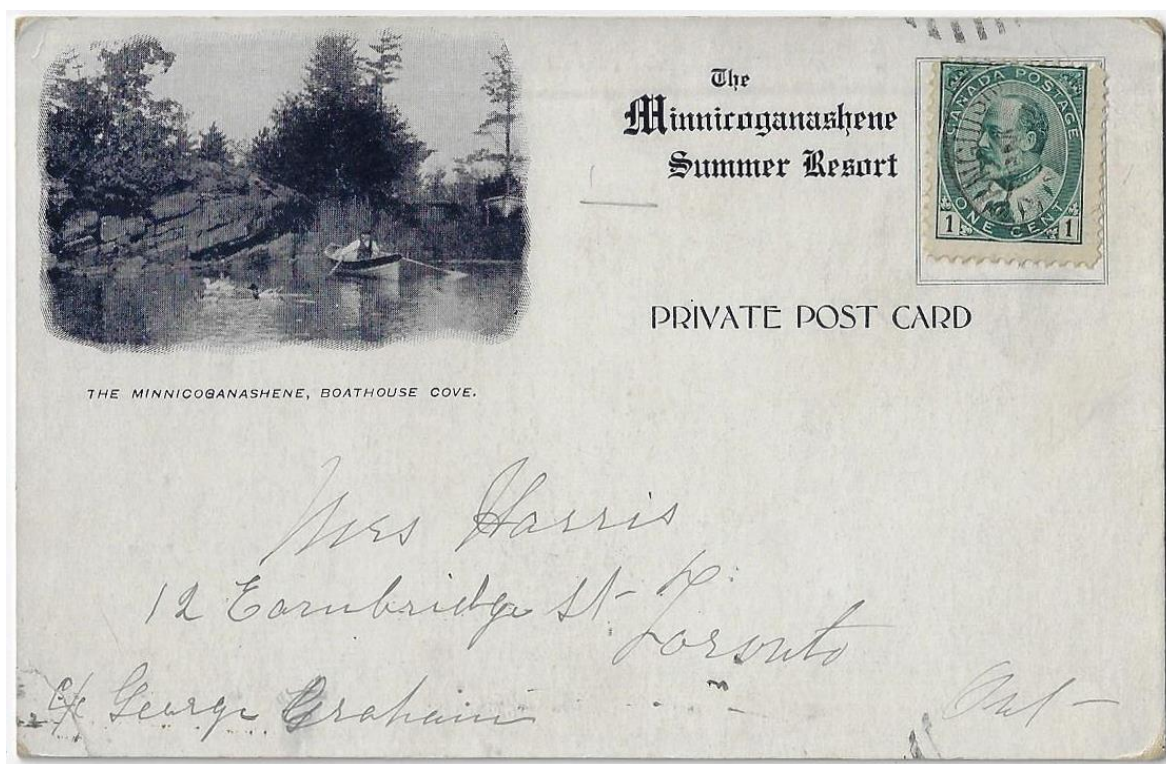 The
Minnicoganashene
Summer Resort
CANADA POSTAGE
1 ONE CENT 1
PRIVATE POST CARD
THE MINNICOGANASHENE, BOATHOUSE COVE.
Mrs Harris
12 Earnbridge St
Toronto
c/o George Graham
Ont